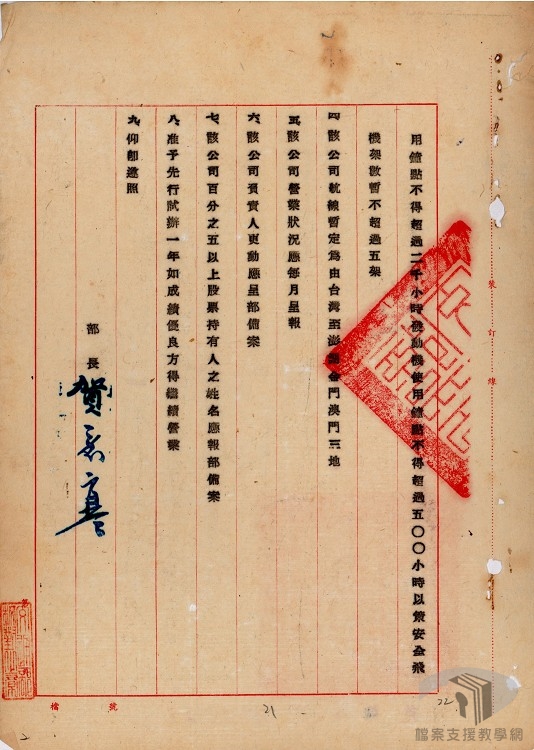 用鐘點不得超過二千小時發動機使用鐘點不得超過五〇〇小時以策安全飛
機架數暫不超過五架
四、該公司航線暫定為由台灣至澎湖金門澳門三地
五、該公司營業狀況應每月呈報
六、該公司負責人更動應呈部備案
七、該公司百分之五以上股票持有人之姓名應報部備案
八、准予先行試辦一年如成績優良方得繼續營業
九、仰即遵照
部長 賀衷寒
裝訂線
檔號
21
22
2
檔案支援教學網